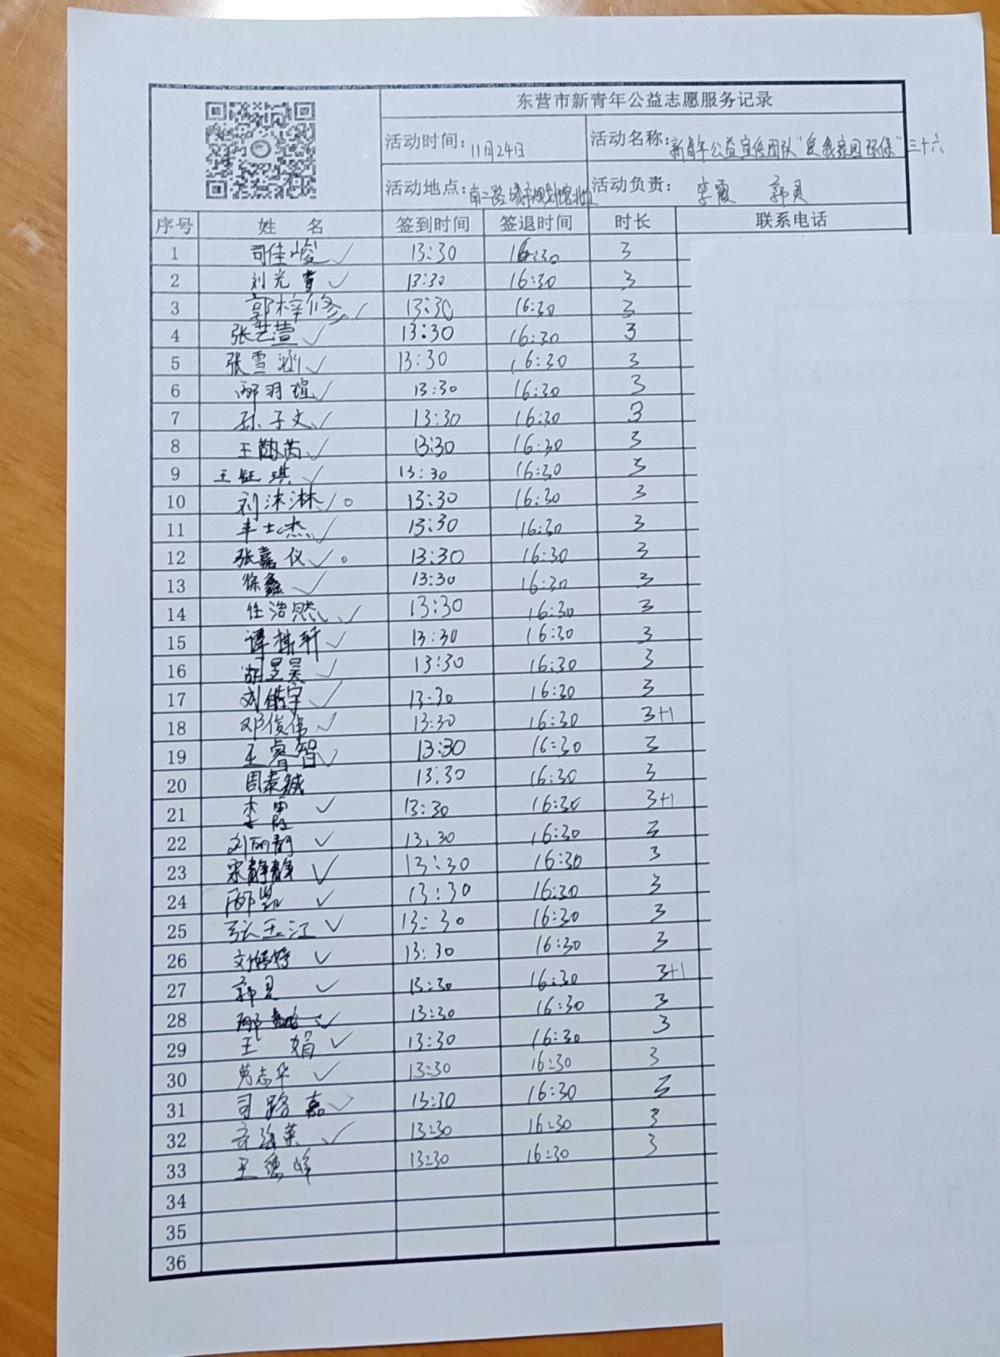 东营市新青年公益志愿服务记录
活动时间: 11月24日 活动名称: 新青年公益宣传团队"爱我家园环保"三十六
活动地点: 南二路城市规划馆北 活动负责: 李霞 郭灵
序号 姓 名 签到时间 签退时间 时长 联系电话
1 司佳峻 ✓ 13:30 16:30 3
2 刘光 ✓ 13:30 16:30 3
3 郭梓修 ✓ 13:30 16:30 3
4 张艺萱 ✓ 13:30 16:30 3
5 张雪 ✓ 13:30 16:30 3
6 邴羽瑄 ✓ 13:30 16:30 3
7 孙子文 ✓ 13:30 16:30 3
8 王 芮 ✓ 13:30 16:30 3
9 王钰琪 ✓ 13:30 16:30 3
10 刘沫淋 ✓ 。 13:30 16:30 3
11 丰士杰 ✓ 13:30 16:30 3
12 张嘉仪 ✓ 。 13:30 16:30 3
13 徐鑫 ✓ 13:30 16:30 3
14 任浩然 ✓ 13:30 16:30 3
15 谭 轩 ✓ 13:30 16:30 3
16 胡昱昊 ✓ 13:30 16:30 3
17 刘皓宇 ✓ 13:30 16:30 3
18 邓俊伟 ✓ 13:30 16:30 3+1
19 王睿智 ✓ 13:30 16:30 3
20 周泰铖 13:30 16:30 3
21 李霞 ✓ 13:30 16:30 3+1
22 刘丽 ✓ 13:30 16:30 3
23 宋静静 ✓ 13:30 16:30 3
24 邴凯 ✓ 13:30 16:30 3
25 张玉江 ✓ 13:30 16:30 3
26 刘婷婷 ✓ 13:30 16:30 3
27 郭灵 ✓ 13:30 16:30 3+1
28 ✓ 13:30 16:30 3
29 王 娟 ✓ 13:30 16:30 3
30 志华 ✓ 13:30 16:30 3
31 司路嘉 ✓ 13:30 16:30 3
32 海英 ✓ 13:30 16:30 3
33 王德峰 13:30 16:30 3
34
35
36